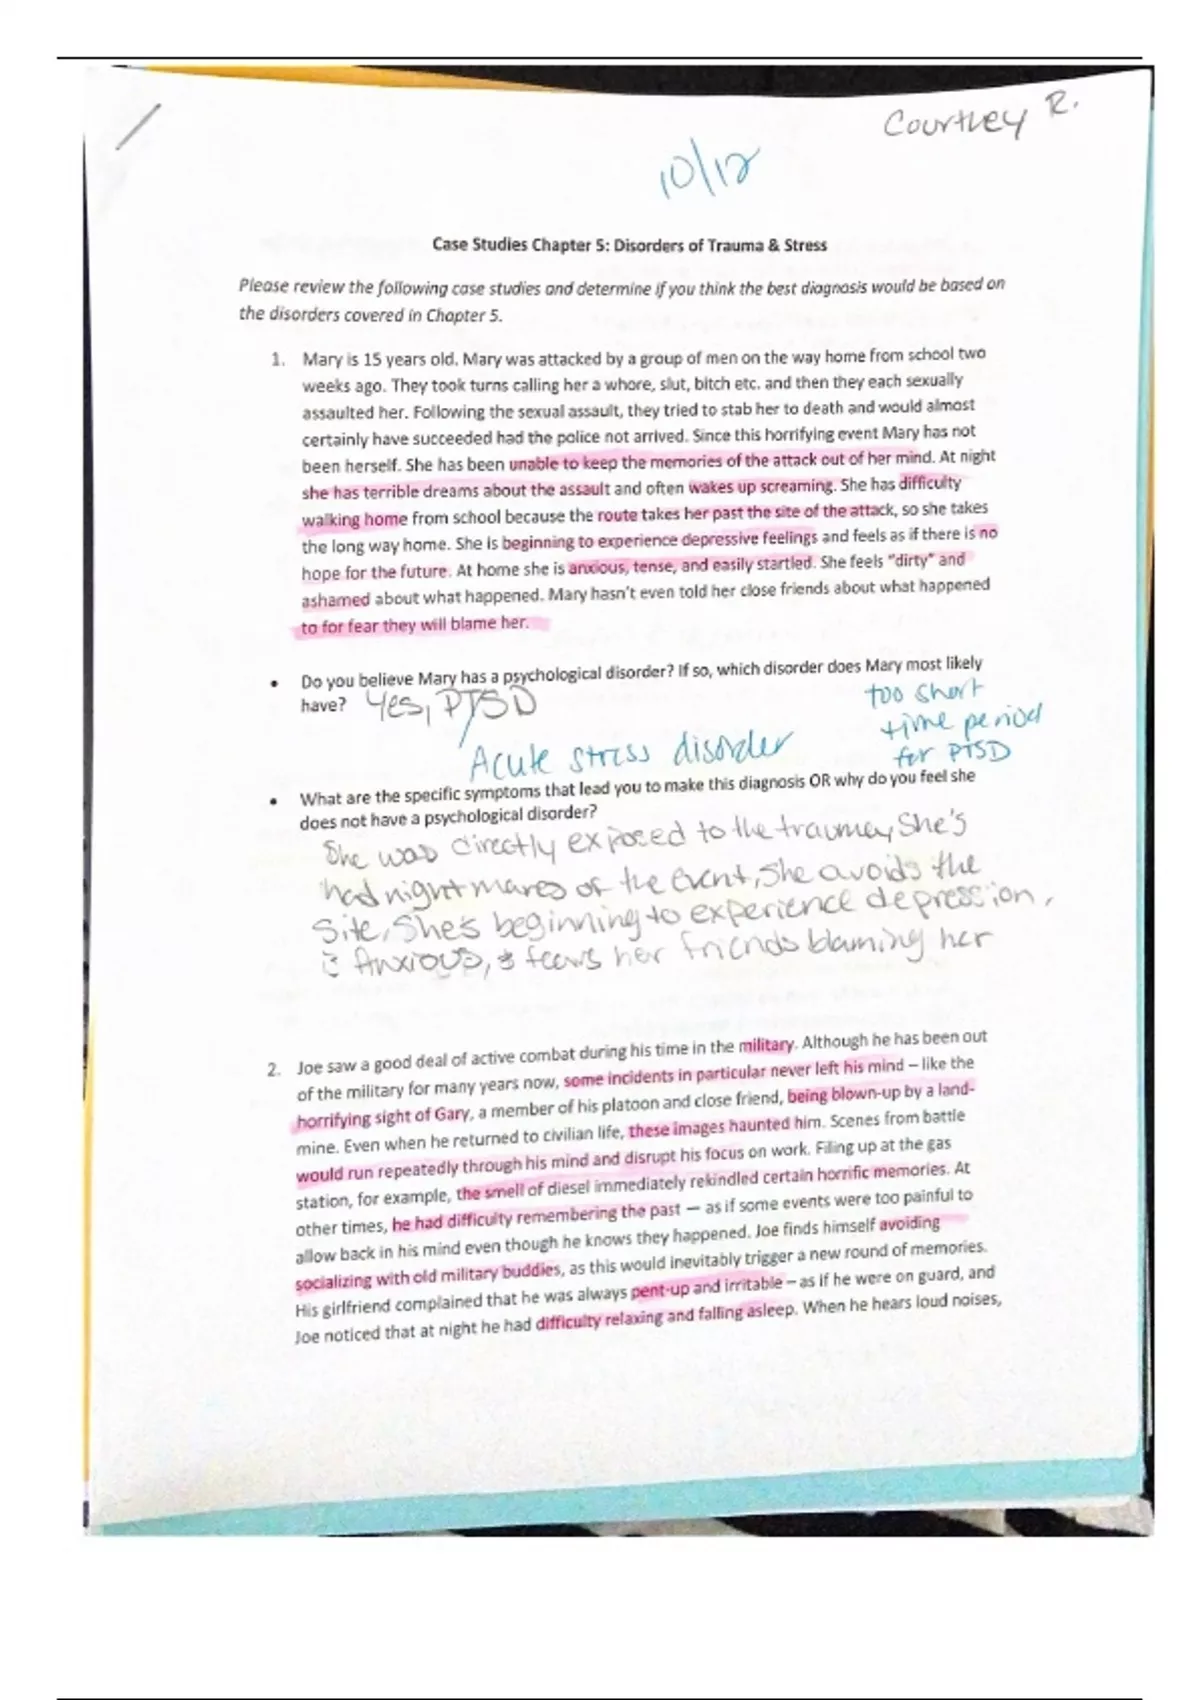 Courtney R.
10/12
Case Studies Chapter 5: Disorders of Trauma & Stress
Please review the following case studies and determine if you think the best diagnosis would be based on
the disorders covered in Chapter 5.
1. Mary is 15 years old. Mary was attacked by a group of men on the way home from school two
weeks ago. They took turns calling her a whore, slut, bitch etc. and then they each sexually
assaulted her. Following the sexual assault, they tried to stab her to death and would almost
certainly have succeeded had the police not arrived. Since this horrifying event Mary has not
been herself. She has been unable to keep the memories of the attack out of her mind. At night
she has terrible dreams about the assault and often wakes up screaming. She has difficulty
walking home from school because the route takes her past the site of the attack, so she takes
the long way home. She is beginning to experience depressive feelings and feels as if there is no
hope for the future. At home she is anxious, tense, and easily startled. She feels "dirty" and
ashamed about what happened. Mary hasn't even told her close friends about what happened
to for fear they will blame her.
• Do you believe Mary has a psychological disorder? If so, which disorder does Mary most likely
have? Yes, PTSD
too short
time period
for PTSD
Acute stress disorder
• What are the specific symptoms that lead you to make this diagnosis OR why do you feel she
does not have a psychological disorder?
She was directly exposed to the trauma, She's
had nightmares of the event, She avoids the
Site, She's beginning to experience depression,
Anxious, & fears her friends blaming her
2. Joe saw a good deal of active combat during his time in the military. Although he has been out
of the military for many years now, some incidents in particular never left his mind – like the
horrifying sight of Gary, a member of his platoon and close friend, being blown-up by a land-
mine. Even when he returned to civilian life, these images haunted him. Scenes from battle
would run repeatedly through his mind and disrupt his focus on work. Filing up at the gas
station, for example, the smell of diesel immediately rekindled certain horrific memories. At
other times, he had difficulty remembering the past — as if some events were too painful to
allow back in his mind even though he knows they happened. Joe finds himself avoiding
socializing with old military buddies, as this would inevitably trigger a new round of memories.
His girlfriend complained that he was always pent-up and irritable – as if he were on guard, and
Joe noticed that at night he had difficulty relaxing and falling asleep. When he hears loud noises,